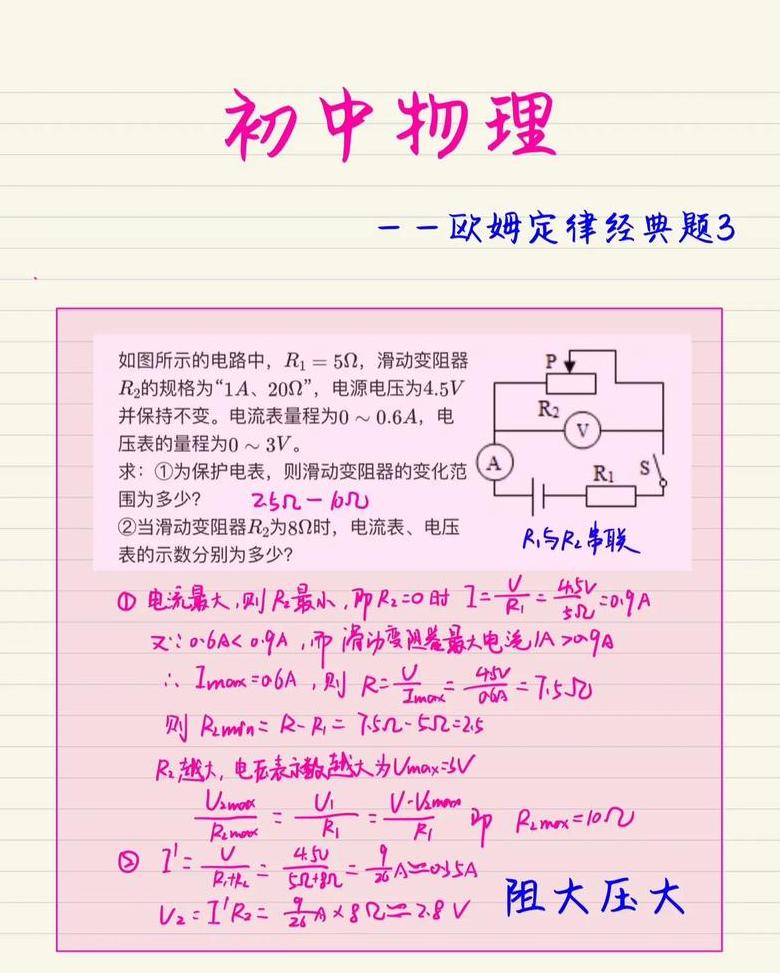 初中物理
——欧姆定律经典题3
如图所示的电路中，R₁ = 5Ω，滑动变阻器
R₂的规格为“1A、20Ω”，电源电压为4.5V
并保持不变。电流表量程为0 ~ 0.6A，电
压表的量程为0 ~ 3V。
求：①为保护电表，则滑动变阻器的变化范
围为多少？ 2.5Ω — 10Ω
②当滑动变阻器R₂为8Ω时，电流表、电压
表的示数分别为多少？
P
R₂
V
A
R₁ S
R₁与R₂串联
① 电流最大，则R₂最小，即R₂=0时 I=U/R₁=4.5V/5Ω=0.9A
又∵0.6A<0.9A，而滑动变阻器最大电流1A>0.9A
∴ Imax=0.6A，则 R=U/Imax=4.5V/0.6A=7.5Ω
则 R₂min=R-R₁=7.5Ω-5Ω=2.5
R₂越大，电压表示数越大为Umax=3V
U₂max/R₂max=U₁/R₁=U-U₂max/R₁ 即 R₂max=10Ω
② I'=U/R₁+R₂=4.5V/5Ω+8Ω=9/26A≈0.35A
U₂=I'R₂=9/26A×8Ω≈2.8V
阻大压大